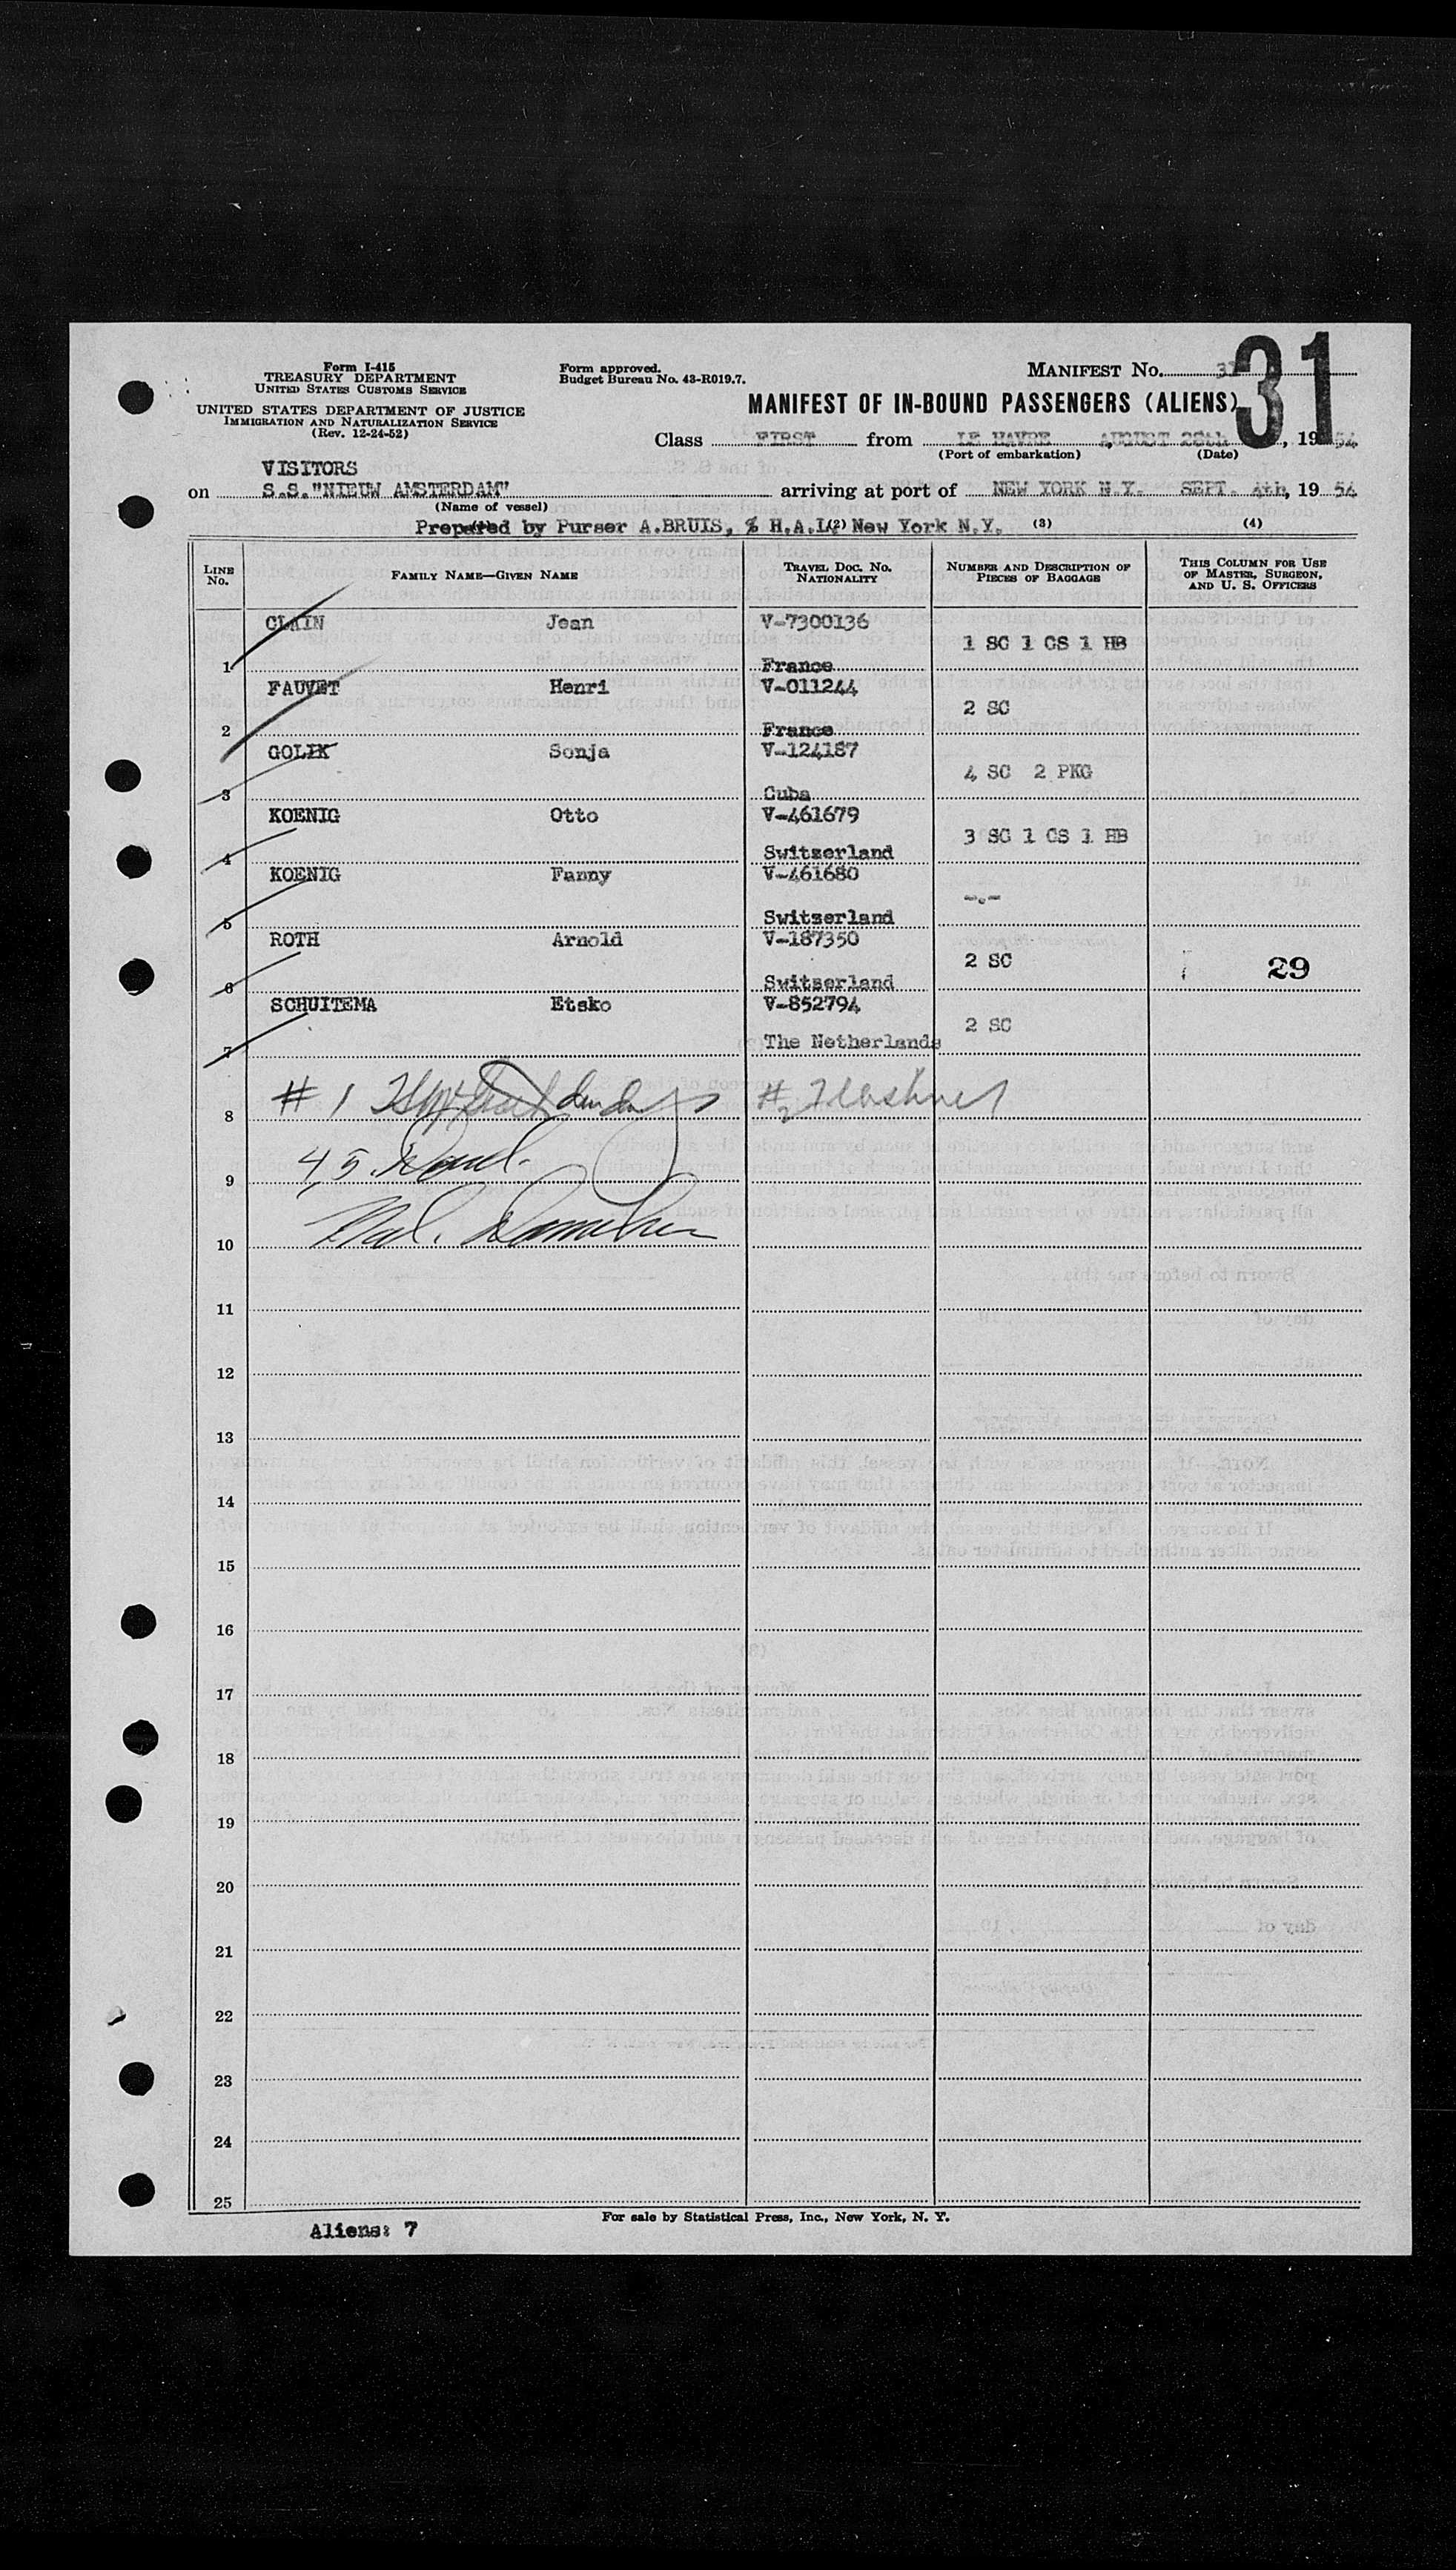 Form I-415
TREASURY DEPARTMENT
UNITED STATES CUSTOMS SERVICE
UNITED STATES DEPARTMENT OF JUSTICE
IMMIGRATION AND NATURALIZATION SERVICE
(Rev. 12-24-52)
Form approved.
Budget Bureau No. 43-R019.7.
MANIFEST No. 31
MANIFEST OF IN-BOUND PASSENGERS (ALIENS)
Class FIRST from LE HAVRE, AUGUST 28th, 1954
(Port of embarkation) (Date)
VISITORS
on S.S."NIEUW AMSTERDAM" arriving at port of NEW YORK N.Y. SEPT. 4th, 1954
(Name of vessel)
Prepared by Purser A.BRUIS, % H.A.L. (2) New York N.Y. (3) (4)
LINE No. FAMILY NAME—GIVEN NAME TRAVEL DOC. No. NATIONALITY NUMBER AND DESCRIPTION OF PIECES OF BAGGAGE THIS COLUMN FOR USE OF MASTER, SURGEON, AND U. S. OFFICERS
CLAIN Jean V-7300136
1 SC 1 CS 1 HB
1 France
FAUVET Henri V-011244
2 SC
2 France
GOLIK Sonja V-124187
4 SC 2 PKG
3 Cuba
KOENIG Otto V-461679
3 SC 1 CS 1 HB
4 Switzerland
KOENIG Fanny V-461680
-.-
5 Switzerland
ROTH Arnold V-187350
2 SC 29
6 Switzerland
SCHUITEMA Etsko V-852794
2 SC
7 The Netherlands
# 1 #2
8
4,5
9
10
11
12
13
14
15
16
17
18
19
20
21
22
23
24
25
For sale by Statistical Press, Inc., New York, N. Y.
Aliens: 7